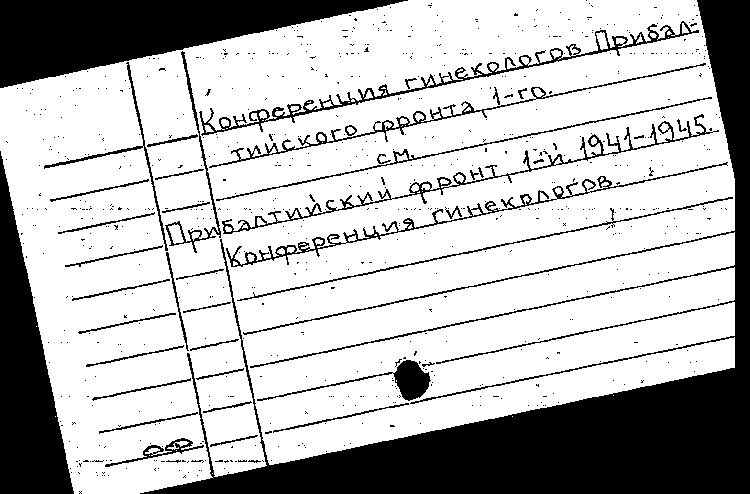 Конференция гинекологов Прибал-
тийского фронта, 1-го.
см.
Прибалтийский фронт, 1-й. 1941-1945.
Конференция гинекологов.